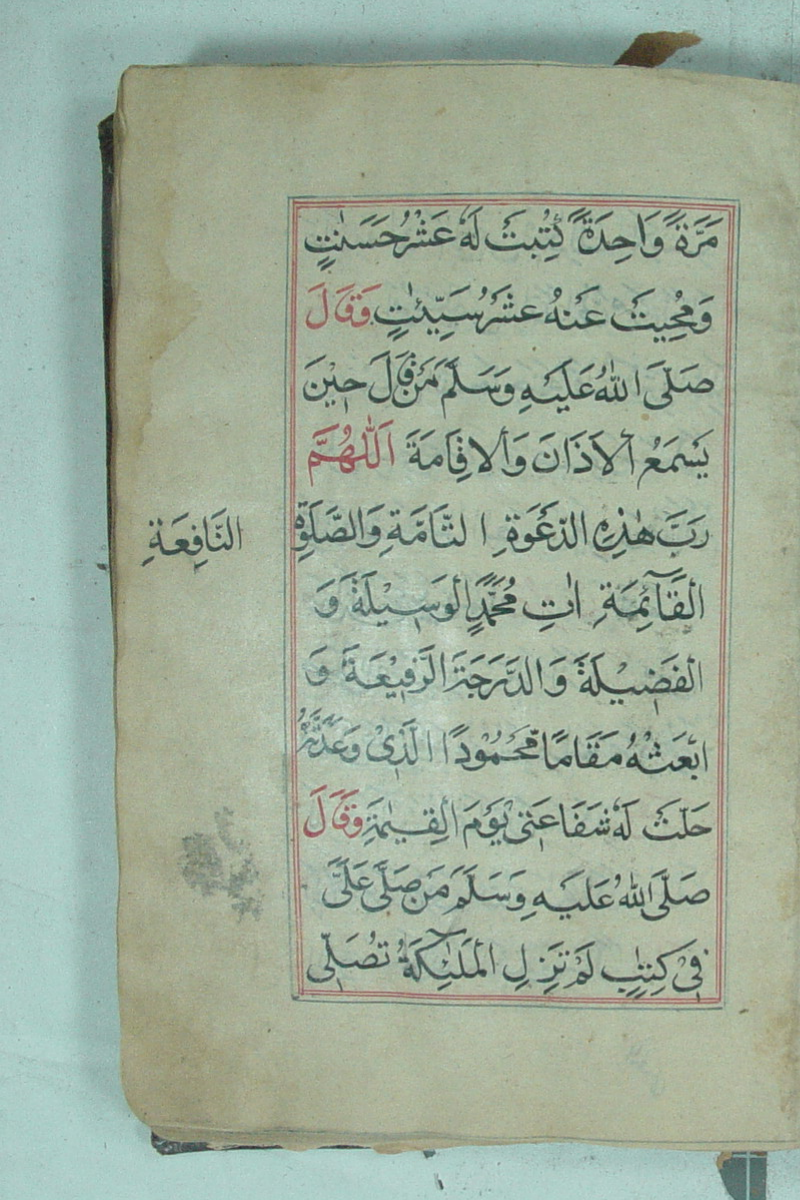 مَرَّةً وَاحِدَةً كُتِبَتْ لَهٗ عَشْرُ حَسَنٰتٍ
وَمُحِيَتْ عَنْهُ عَشَرُ سَيِّئٰتٍ وَقَالَ
صَلَّى اللّٰهُ عَلَيْهِ وَسَلَّمَ مَنْ قَالَ حِيْنَ
يَسْمَعُ الْاَذَانَ وَالْاِقَامَةَ اَللّٰهُمَّ
رَبَّ هٰذِهِ الدَّعْوَةِ التَّامَّةِ وَالصَّلٰوةِ
النَّافِعَةِ
الْقَآئِمَةِ اٰتِ مُحَمَّدٍ الْوَسِيْلَةَ وَ
الْفَضِيْلَةَ وَالدَّرَجَةَ الرَّفِيْعَةَ وَ
ابْعَثْهُ مَقَامًا مَّحْمُوْدًا الَّذِىْ وَعَدْتَّهٗ
حَلَّتْ لَهٗ شَفَاعَتِىْ يَوْمَ الْقِيٰمَةِ وَقَالَ
صَلَّى اللّٰهُ عَلَيْهِ وَسَلَّمَ مَنْ صَلّٰى عَلَىَّ
فِىْ كِتٰبٍ لَمْ تَزِلِ الْمَلٰٓئِكَةُ تُصَلِّى